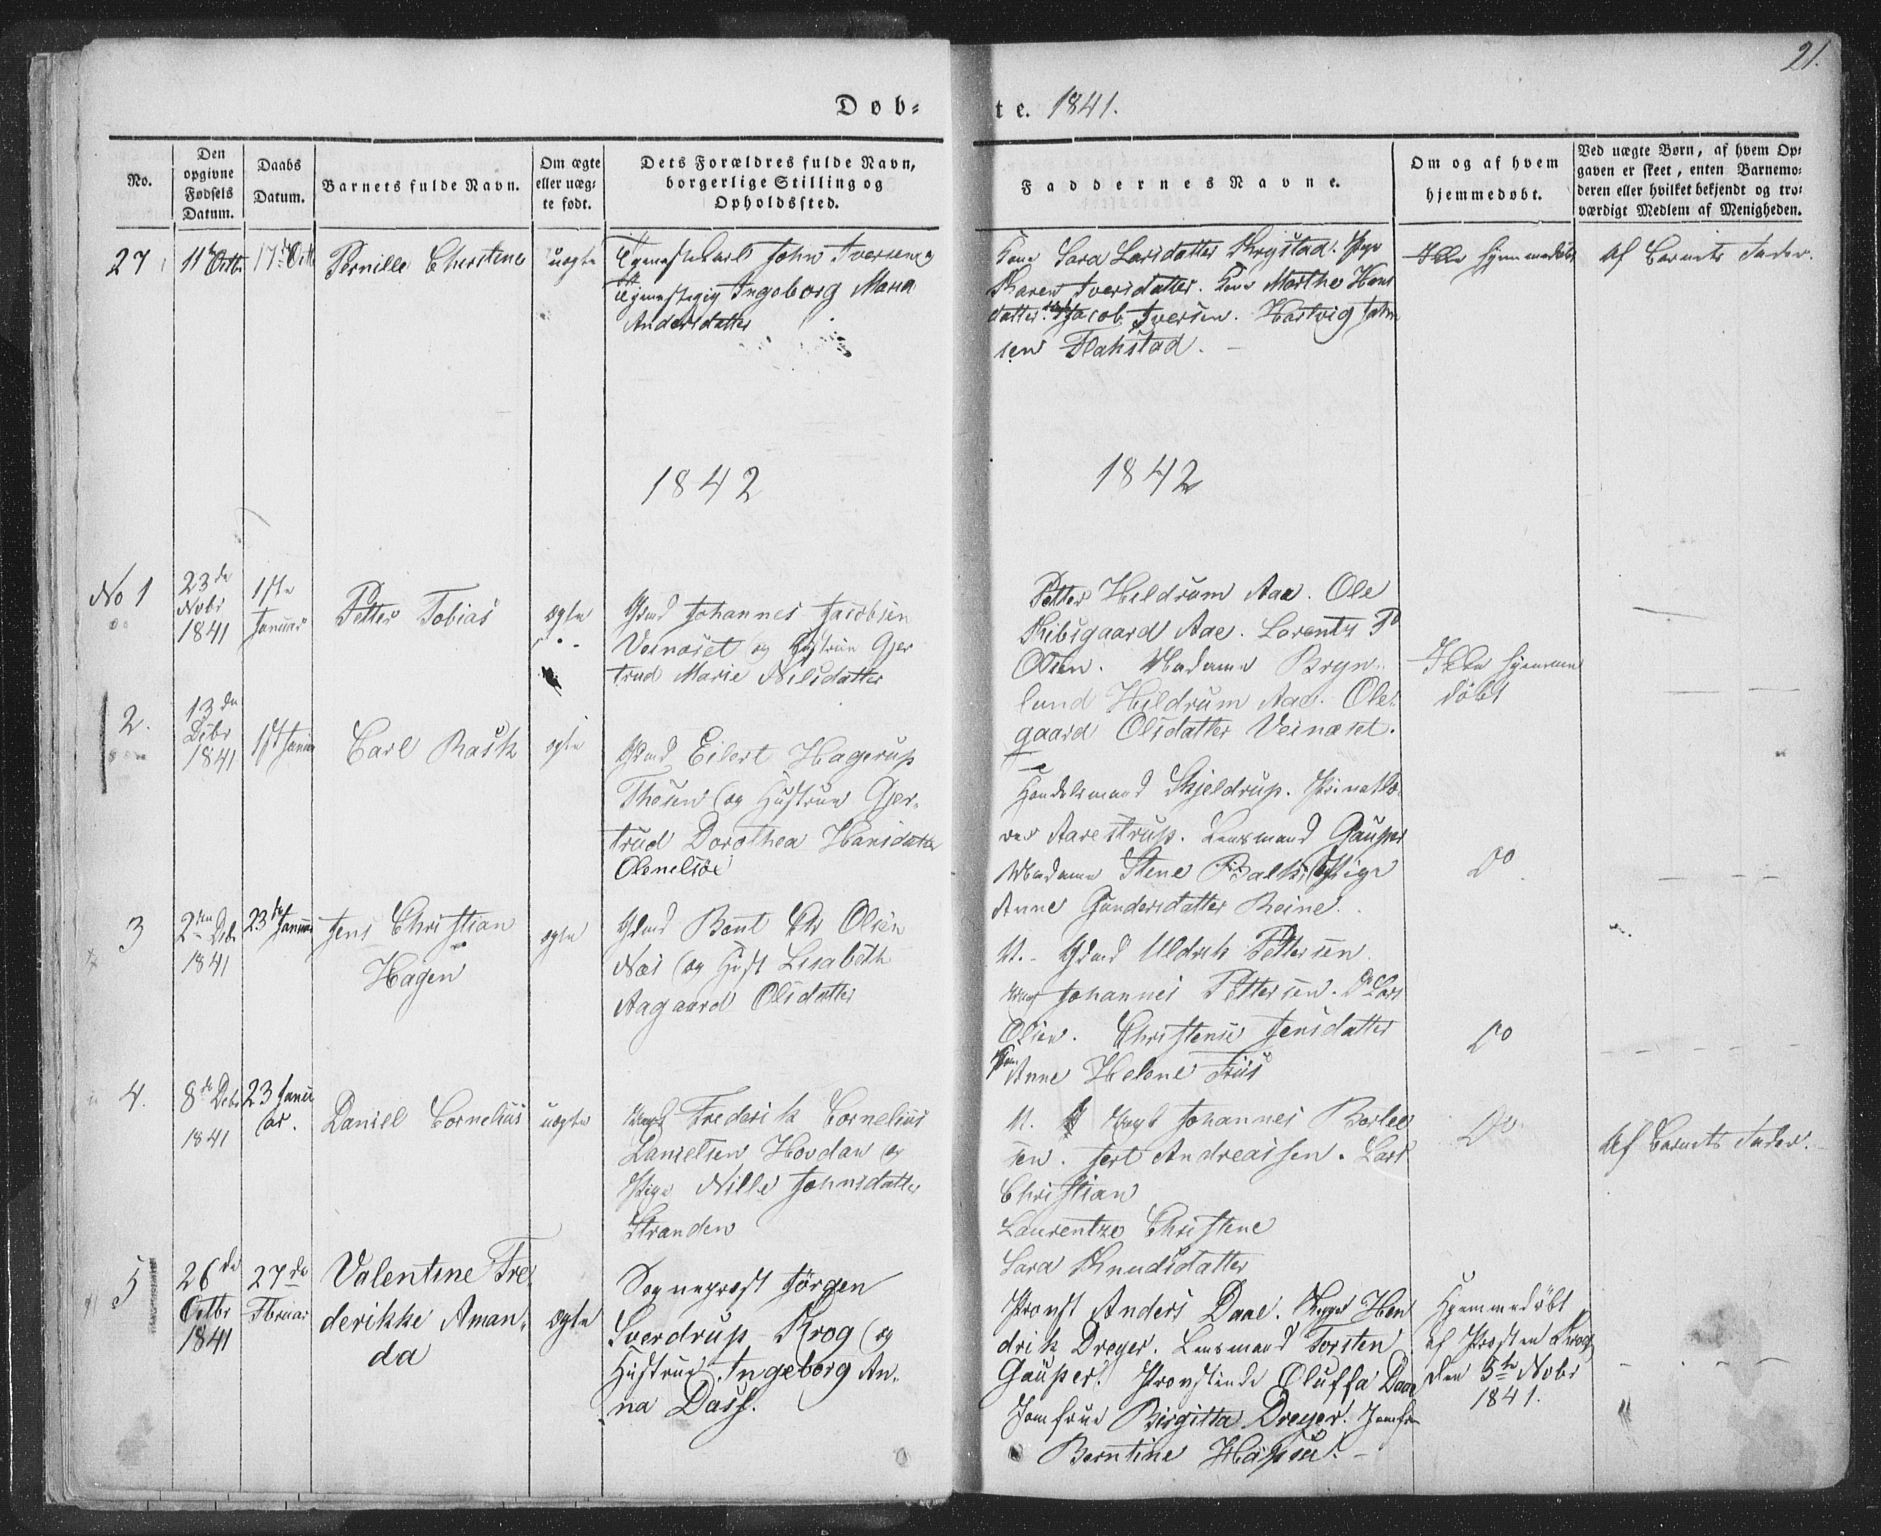 21.
Døb-
te. 1841.
No.
Den opgivne Fødsels Datum.
Daabs Datum.
Barnets fulde Navn.
Om ægte eller uægte født.
Dets Forældres fulde Navn, borgerlige Stilling og Opholdssted.
Faddernes Navne.
Om og af hvem hjemmedøbt.
Ved uægte Børn, af hvem Opgaven er skeet, enten Barnemoderen eller hvilket bekjendt og troværdigt Medlem af Menigheden.
27
11te Octbr
17de Octb
Pernille Christine
uægte
John Iversen og
Ingeborg Maria
Andersdatter
Kone Sara Larsdatter Pige
Karen Iversdatter. Kone Marthe Hans
datter. Jacob Iversen. Hartvig John
sen Flakstad.
Ikke hjemmedøbt
Af Barnets Fader.
1842
1842
No 1
23de
Novbr
1841
1ste
Januar
Petter Tobias
ægte
Gbmd Johannes Jacobsen
Veinæset og Hustrue Gjer
trud Marie Nilsdatter
Petter Hildrum Aaa. Ole
Ribsgaard Aae. Lorents P
Olsen. Madame Bryn
lund Hildrum Aae. Ole
gaard Olsdatter Veinæset.
Ikke hjemme
døbt
2.
13de
Debr
1841
1st Januar
Carl Rask
ægte
Gbmd Eilert Hagerup
Thesen og Hustrue Gjer-
trud Dorothea Hansdatter
Olenelsøe
Handelsmand Skjeldrup. Privatlæ
rer Aarestrup. Lensmand Gaüper
Madame Stene Pige
Anne Gundersdatter Reine.
Do
3
2den Debr
1841
23de Januar
Jens Christian
Hagen
ægte
Gbmd Bent Chr Olsen
Næs og Hust Lisabeth
Aagaard Olsdatter
U. - Gbmd Uldrik Pettersen
Johannes Pettersen. Do Lars
Olsen. Christense Jensdatter
Anne Helene Friis
Do
4.
8de Debr
1841
23 Janu
ar.
Daniel Cornelius
uægte
Frederik Cornelius
Danielsen Hovdan og
Pige Nille Johnsdatter
Stranden
U. Johannes
sen. Andreassen. Lars
Christian
Laurentze Christene
Sara Knudsdatter
Do
Af Barnets Fader.
5
26de
Octbr
1841
27de
Februar
Valentine Fre
derikke Aman-
da
ægte
Sognepræst Jörgen
Sverdrup Krog og
Hustrue Ingeborg An-
na Dass.
Provst Anders Daae. Hen
drik Dreyer. Lensmand Torsten
Gaüper. Provstinde Oluffa Daae
Jomfrue Birgitta Dreyer. Jomfr
Berntine
Hjemmedøbt
af Præsten Krog
den 5te Novbr
1841.